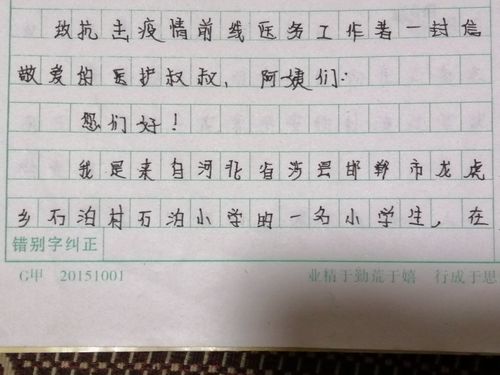 致抗击疫情前线医务工作者一封信
敬爱的医护叔叔,阿姨们:
您们好!
我是来自河北省涉县邯郸市龙虎
乡石泊村石泊小学的一名小学生,在
错别字纠正
G甲 20151001 业精于勤荒于嬉 行成于思